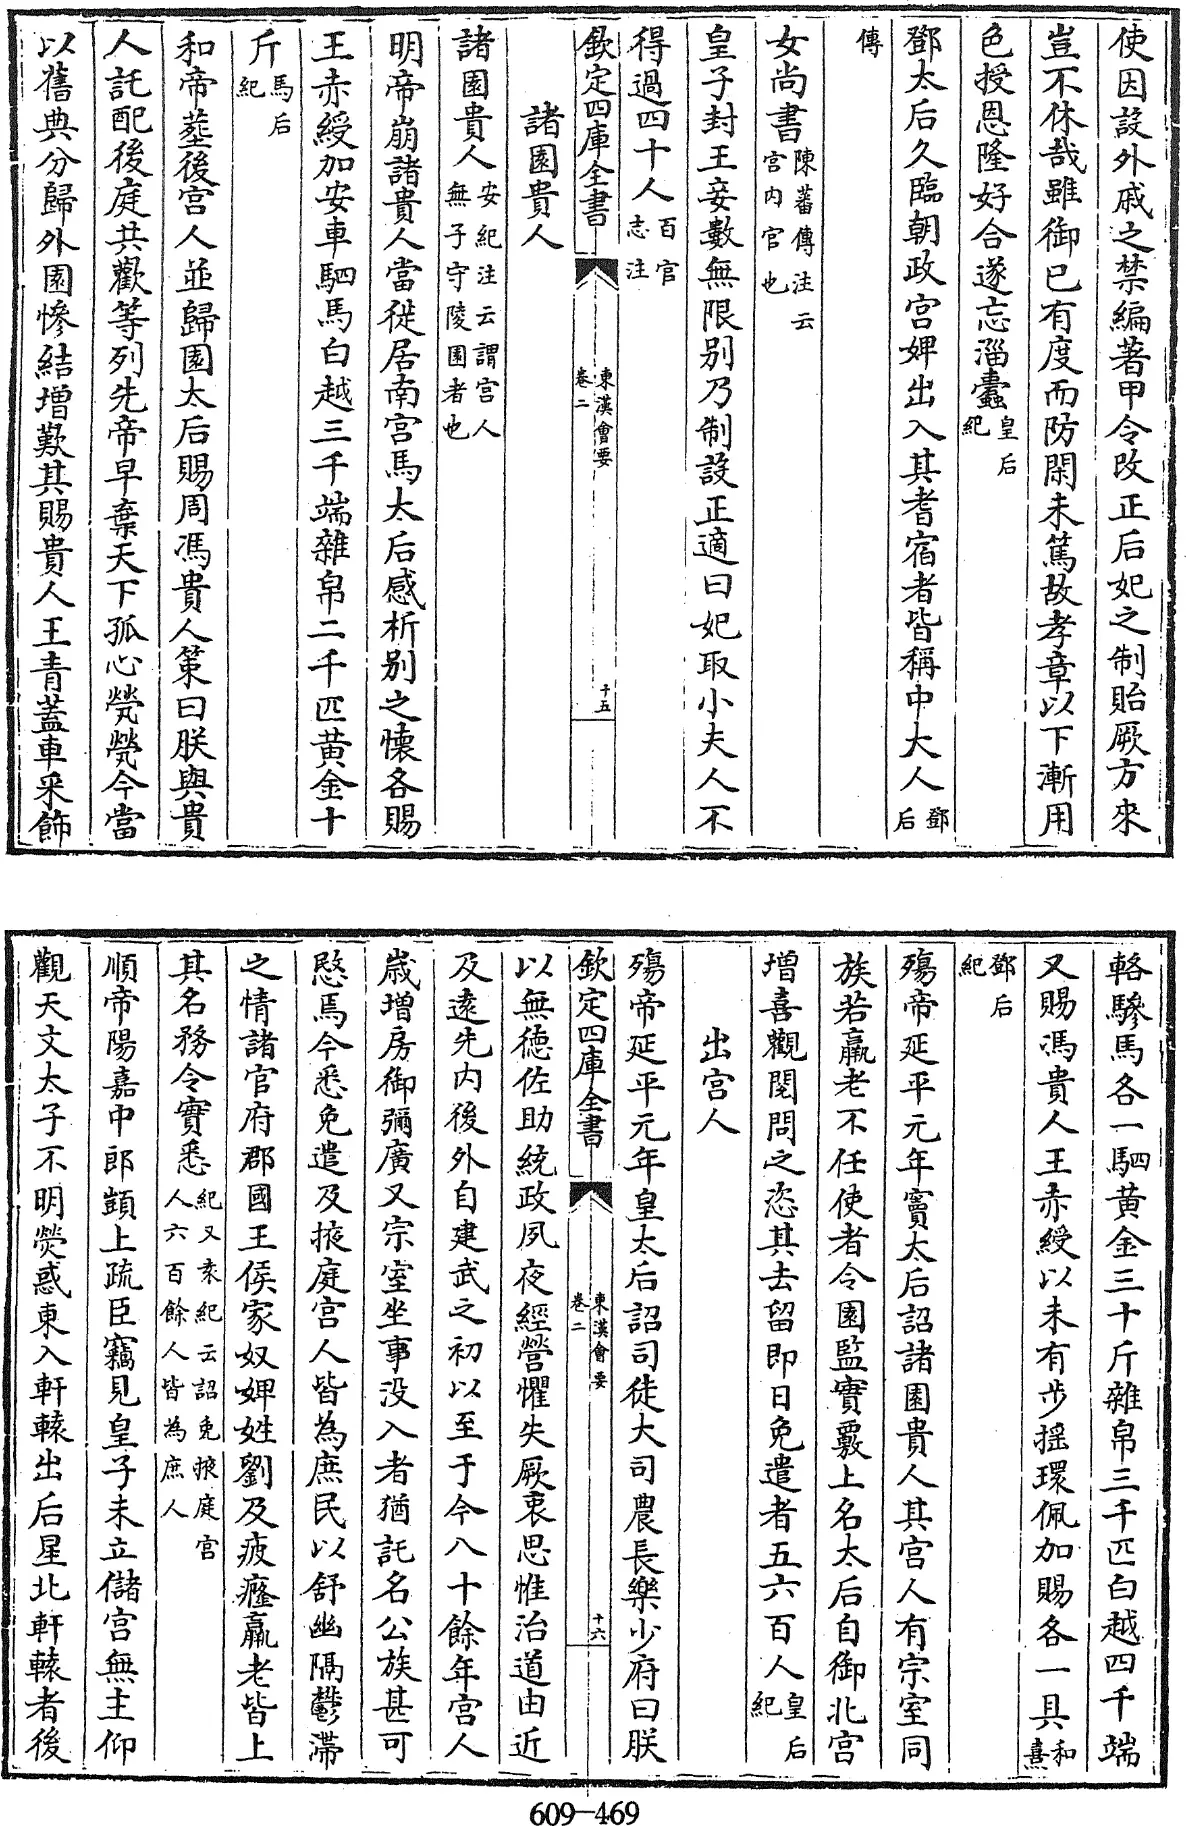 使因設外戚之禁編著甲令改正后妃之制貽厥方來
豈不休哉雖御已有度而防閑未篤故孝章以下漸用
色授恩隆好合遂忘淄蠹皇后紀
鄧太后久臨朝政宮婢出入其耆宿者皆稱中大人鄧后
傳
女尚書陳蕃傳注云宮内官也
皇子封王妾數無限别乃制設正適曰妃取小夫人不
得過四十人百官志注
欽定四庫全書 東漢會要 卷二 十五
諸園貴人
諸園貴人安紀注云謂宮人無子守陵園者也
明帝崩諸貴人當徙居南宮馬太后感析别之懷各賜
王赤綬加安車駟馬白越三千端雜帛二千匹黄金十
斤馬后紀
和帝葬後宮人並歸園太后賜周馮貴人策曰朕與貴
人託配後庭共歡等列先帝早棄天下孤心煢煢今當
以舊典分歸外園慘結增歎其賜貴人王青蓋車采飾
輅驂馬各一駟黄金三十斤雜帛三千匹白越四千端
又賜馮貴人王赤綬以未有步摇環佩加賜各一具和熹
鄧后紀
殤帝延平元年竇太后詔諸園貴人其宮人有宗室同
族若羸老不任使者令園監實覈上名太后自御北宮
增喜觀閱問之恣其去留即日免遣者五六百人皇后紀
出宮人
殤帝延平元年皇太后詔司徒大司農長樂少府曰朕
欽定四庫全書 東漢會要 卷二 十六
以無德佐助統政夙夜經營懼失厥衷思惟治道由近
及遠先内後外自建武之初以至于今八十餘年宮人
歲增房御彌廣又宗室坐事没入者猶託名公族甚可
愍焉今悉免遣及掖庭宮人皆為庶民以舒幽隔鬱滯
之情諸官府郡國王侯家奴婢姓劉及疲癃羸老皆上
其名務令實悉紀又袁紀云詔免掖庭宮人六百餘人皆為庶人
順帝陽嘉中郎顗上疏臣竊見皇子未立儲宮無主仰
觀天文太子不明熒惑東入軒轅出后星北軒轅者後
609-469